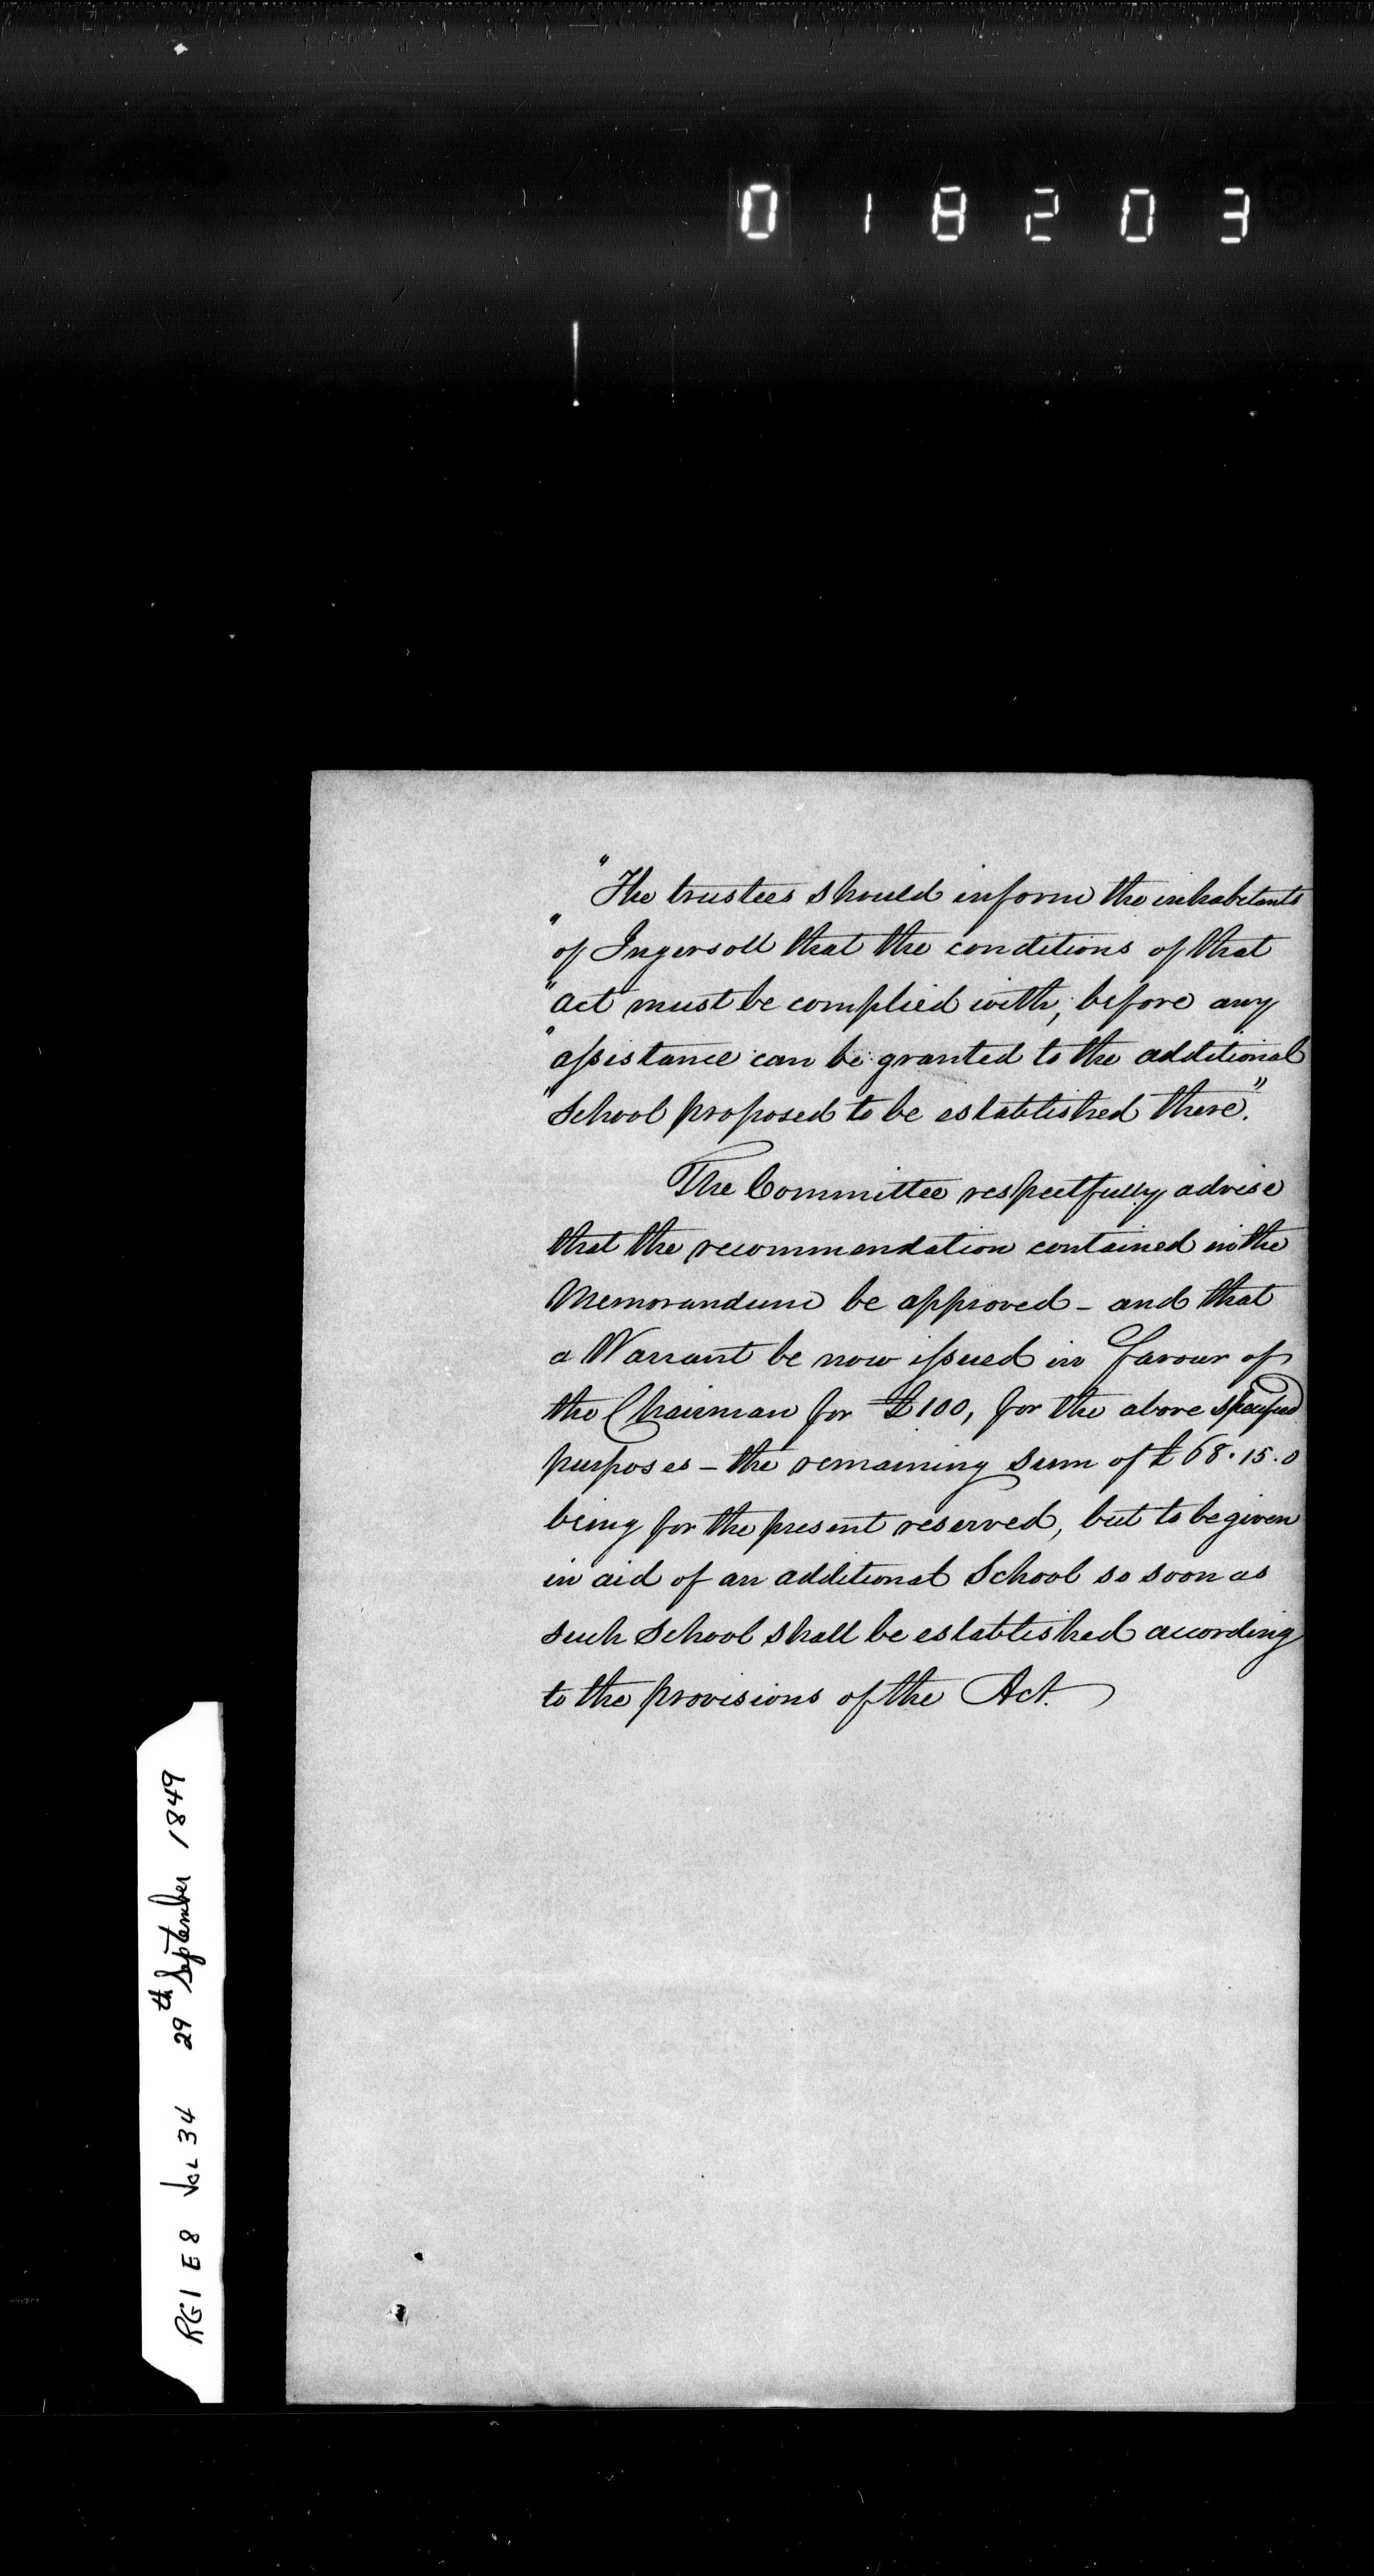 018203
"The trustees should inform the inhabitants
"of Ingersoll that the conditions of that
"act must be complied with, before any
"assistance can be granted to the additional
"School proposed to be established there".
The Committee respectfully advise
that the recommendation contained in the
Memorandum be approved - and that
a Warrant be now issued in favour of
the Chairman for £100, for the above specified
purposes - the remaining sum of £68.15.0
being for the present reserved, but to be given
in aid of an additional School so soon as
such School shall be established according
to the provisions of the Act.
RG1 E8 Vol 34 29th September 1849